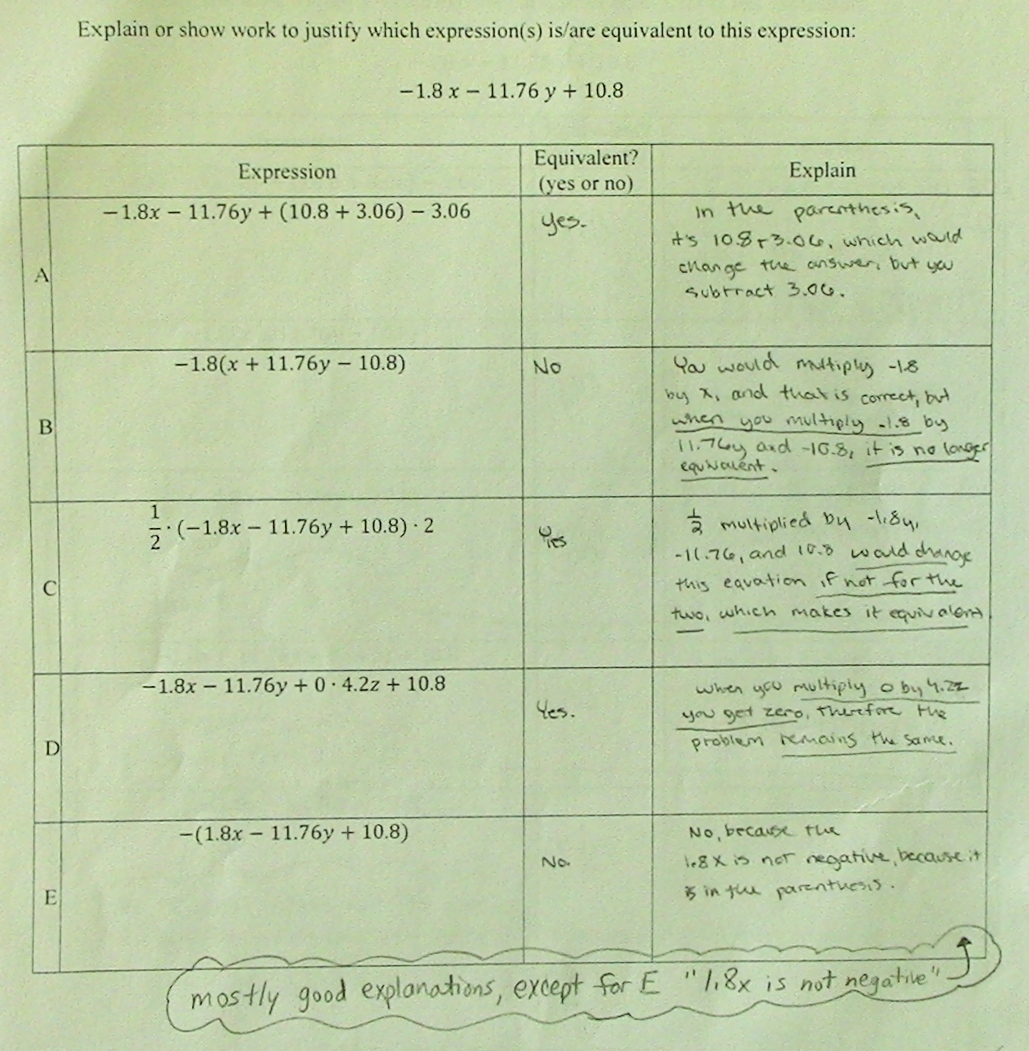 Explain or show work to justify which expression(s) is/are equivalent to this expression:
−1.8 x − 11.76 y + 10.8
Expression
Equivalent?
(yes or no)
Explain
A
−1.8x − 11.76y + (10.8 + 3.06) − 3.06
Yes.
In the parenthesis,
it's 10.8+3.06, which would
change the answer, but you
subtract 3.06.
B
−1.8(x + 11.76y − 10.8)
No
You would multiply -1.8
by x, and that is correct, but
when you multiply -1.8 by
11.76y and -10.8, it is no longer
equivalent.
C
1/2 · (−1.8x − 11.76y + 10.8) · 2
Yes
1/2 multiplied by -1.8y,
-11.76, and 10.8 would change
this equation if not for the
two, which makes it equivalent
D
−1.8x − 11.76y + 0 · 4.2z + 10.8
Yes.
when you multiply 0 by 4.2z
you get zero, therefore the
problem remains the same.
E
−(1.8x − 11.76y + 10.8)
No.
No, because the
1.8x is not negative, because it
is in the parenthesis.
mostly good explanations, except for E "1.8x is not negative"